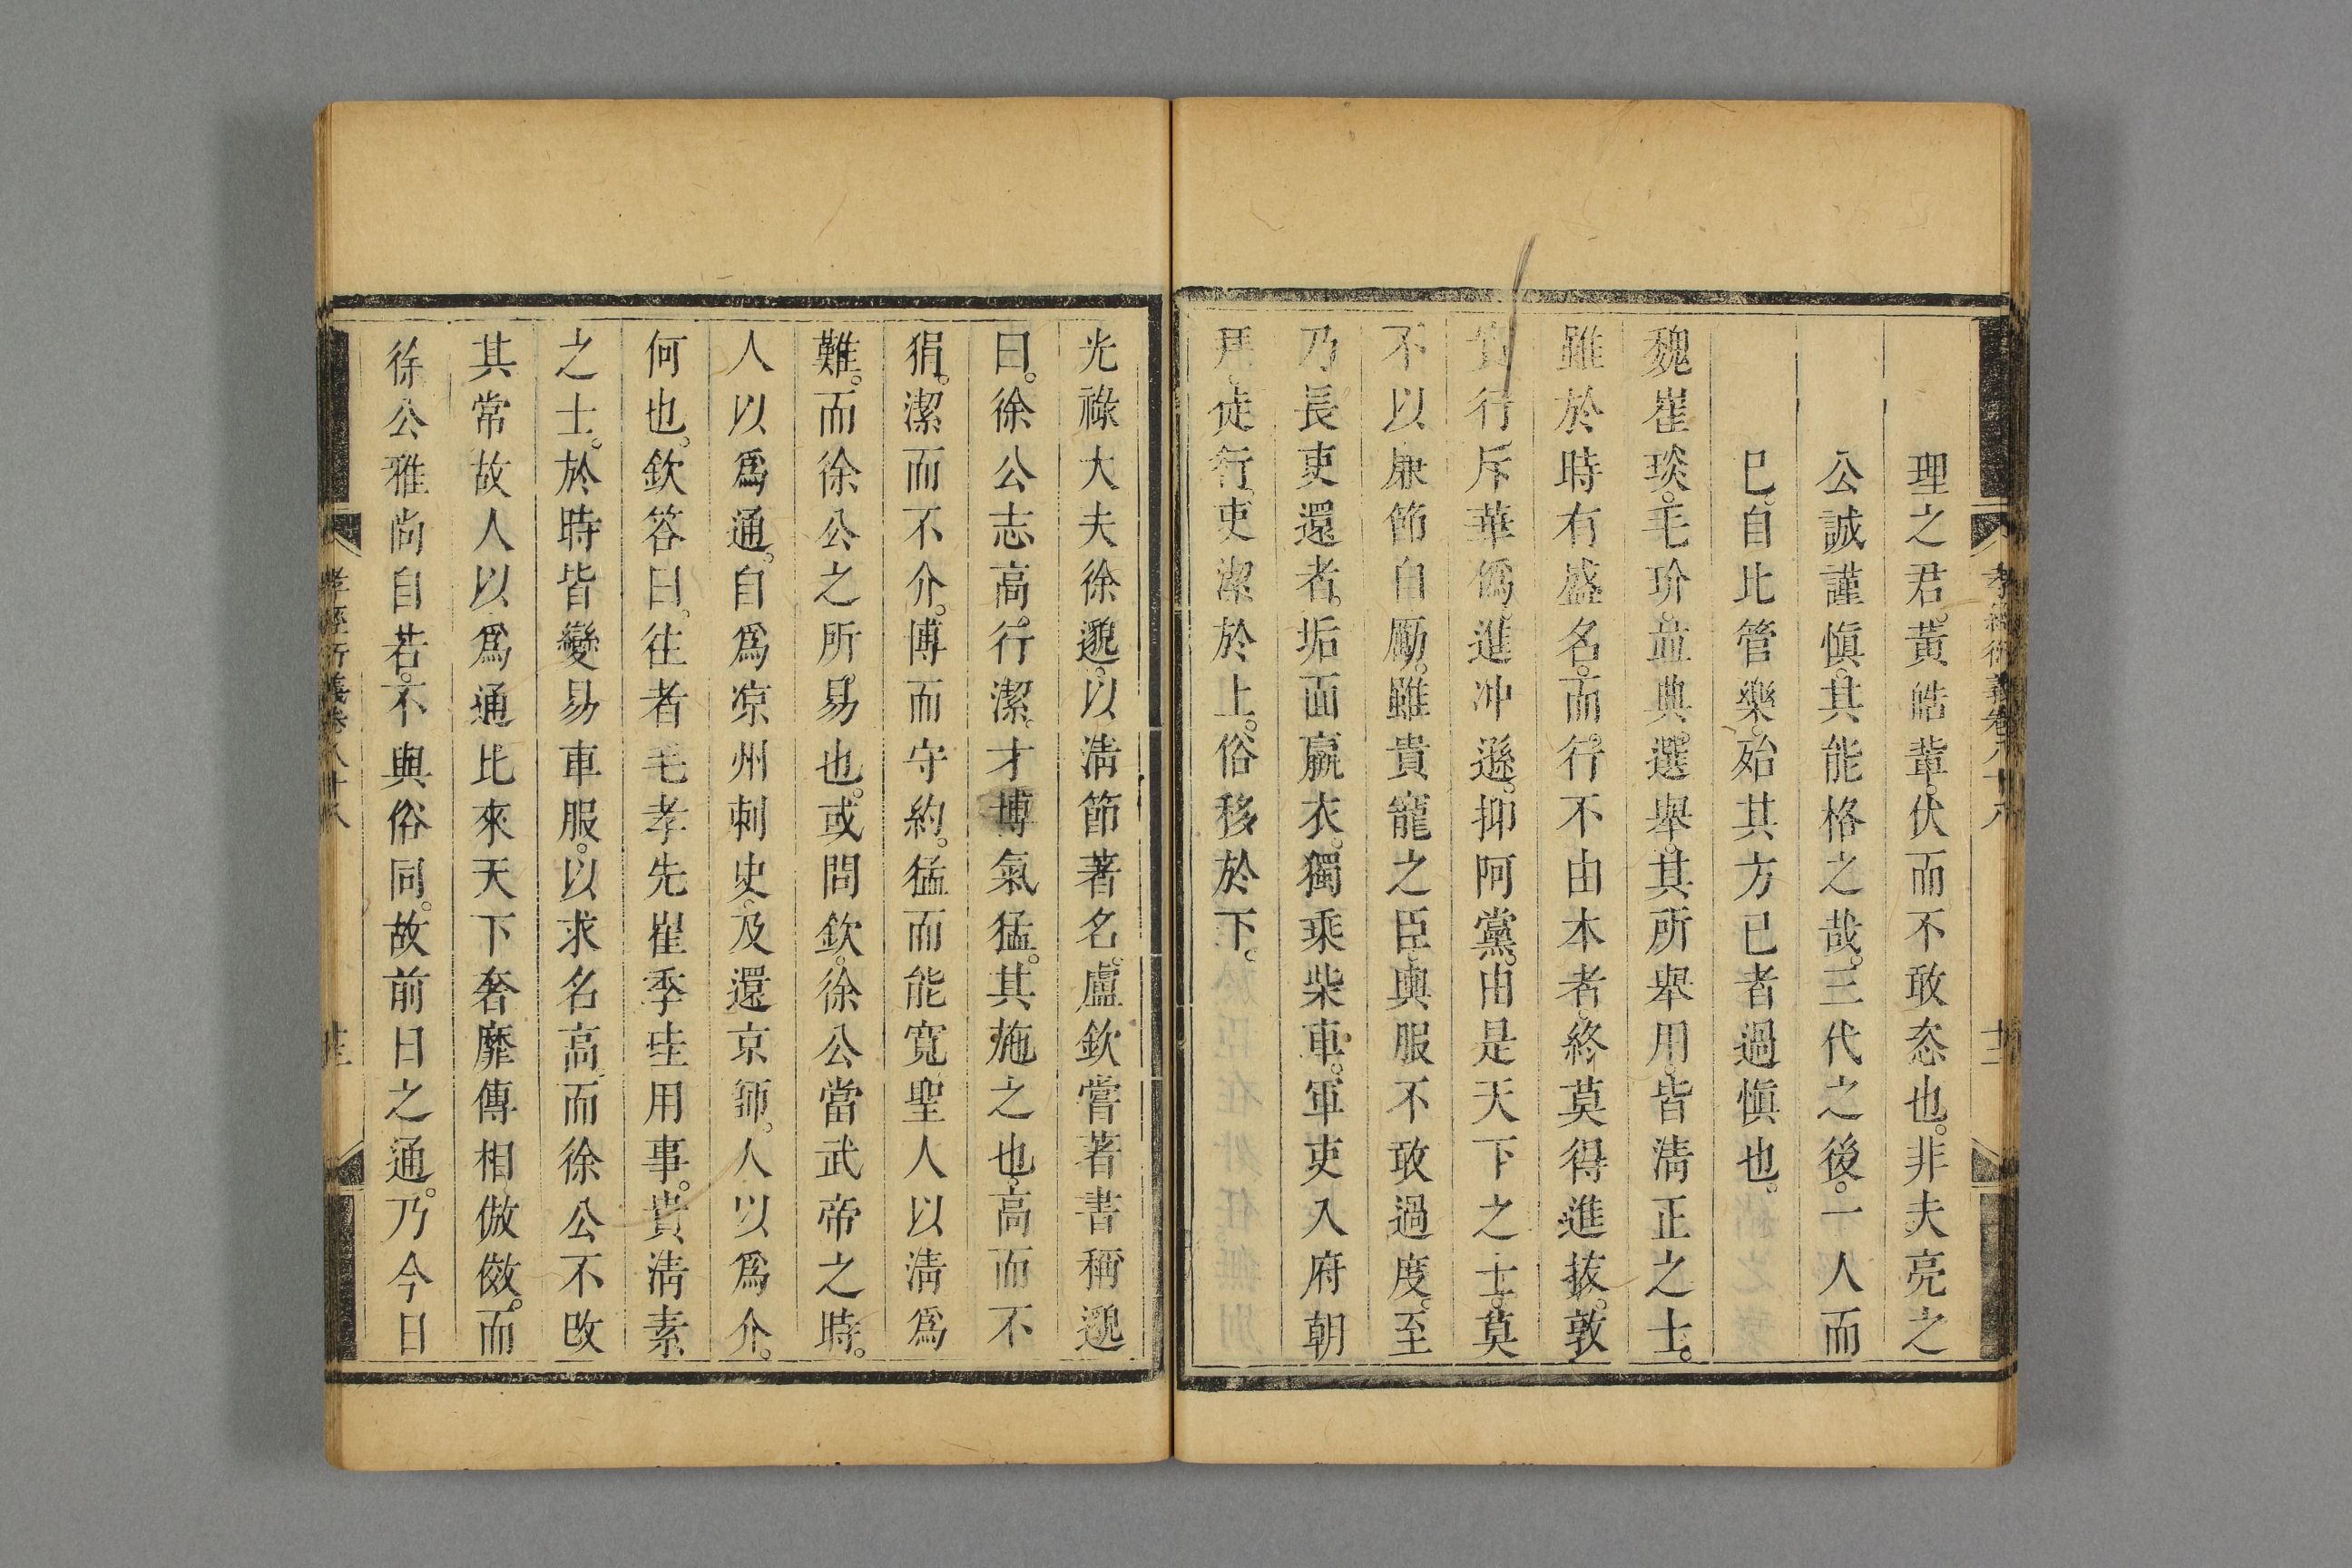 孝經衍義卷八十八 十二
理之君。黃皓輩。伏而不敢恣也。非夫亮之
公誠謹愼。其能格之哉。三代之後。一人而
巳。自比管樂。殆其方已者過愼也。
魏崔琰。毛玠。並典。選舉。其所舉用。皆淸正之士。
雖於時有盛名。而行不由本者。終莫得進拔。敦
實行斥華僞。進冲遜。抑阿黨。由是天下之士。莫
不以廉節自勵。雖貴寵之臣。輿服不敢過度。至
乃長吏還者。垢面羸衣。獨乘柴車。軍吏入府朝
拜。徒行。吏潔於上。俗移於下。
光祿大夫徐邈。以淸節著名。盧欽嘗著書稱邈
曰。徐公志高。行潔。才博氣猛。其施之也。高而不
狷。潔而不介。博而守約。猛而能寬聖人以淸爲
難。而徐公之所易也。或問欽。徐公當武帝之時。
人以爲通。自爲凉州刺史。及還京師。人以爲介。
何也。欽答曰。往者毛孝先崔季珪用事。貴淸素
之士。於時皆變易車服。以求名高。而徐公不改
其常故人以爲通比來天下奢靡傳相倣傚。而
徐公雅尚自若。不與俗同。故前日之通。乃今日
孝經衍義卷八十八